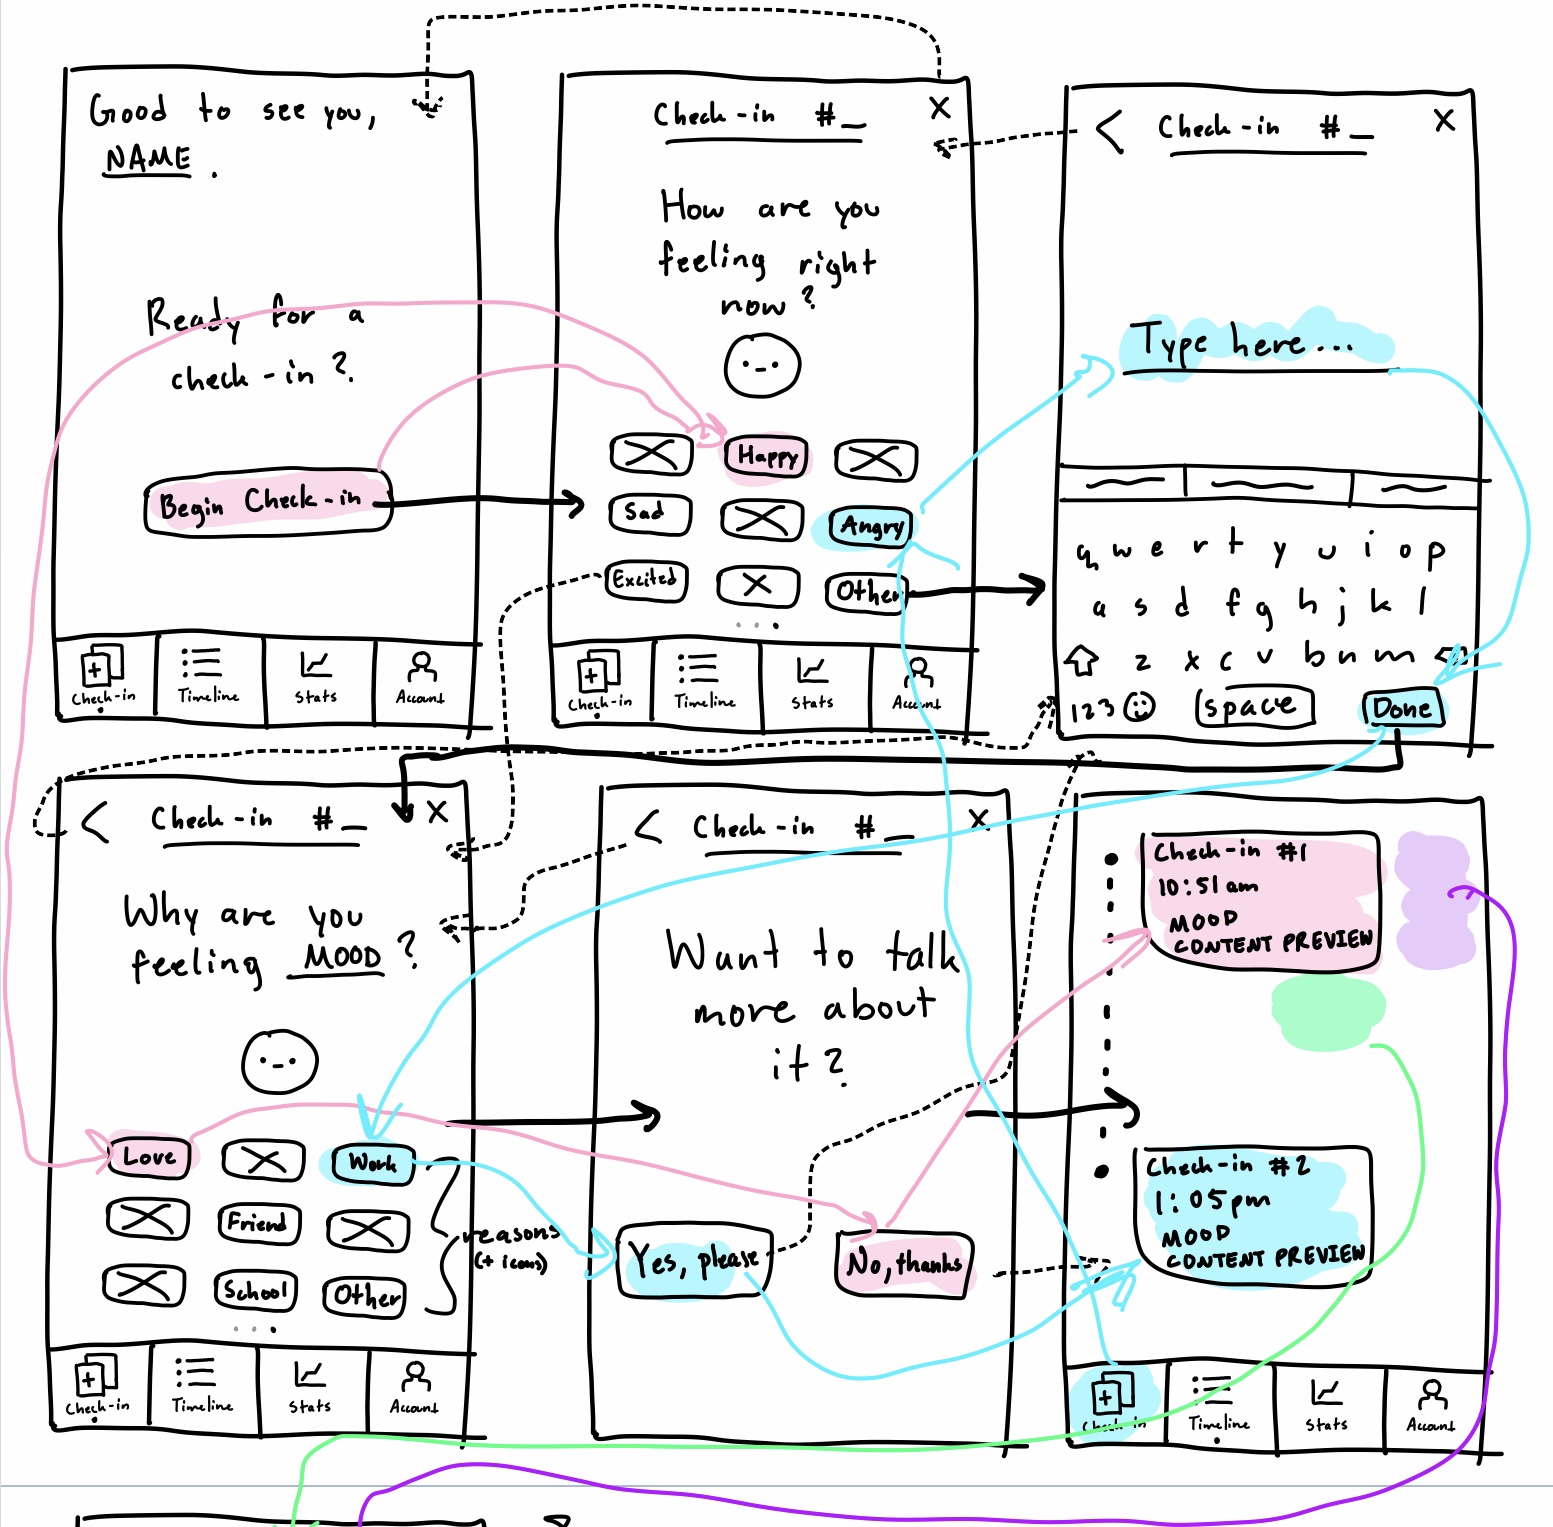 Good to see you,
NAME .
Ready for a
check-in ?
Begin Check-in
Check-in
Timeline
Stats
Account
Check-in #_
X
How are you
feeling right
now ?
Happy
Sad
Angry
Excited
Other
...
Check-in
Timeline
Stats
Account
< Check-in #_
X
Type here...
q w e r t y u i o p
a s d f g h j k l
z x c v b n m
123
space
Done
< Check-in #_
X
Why are you
feeling MOOD ?
Love
Work
Friend
School
Other
...
reasons
(+ icons)
Check-in
Timeline
Stats
Account
< Check-in #_
X
Want to talk
more about
it ?
Yes, please
No, thanks
Check-in #1
10:51 am
MOOD
CONTENT PREVIEW
Check-in #2
1:05pm
MOOD
CONTENT PREVIEW
Check-in
Timeline
Stats
Account